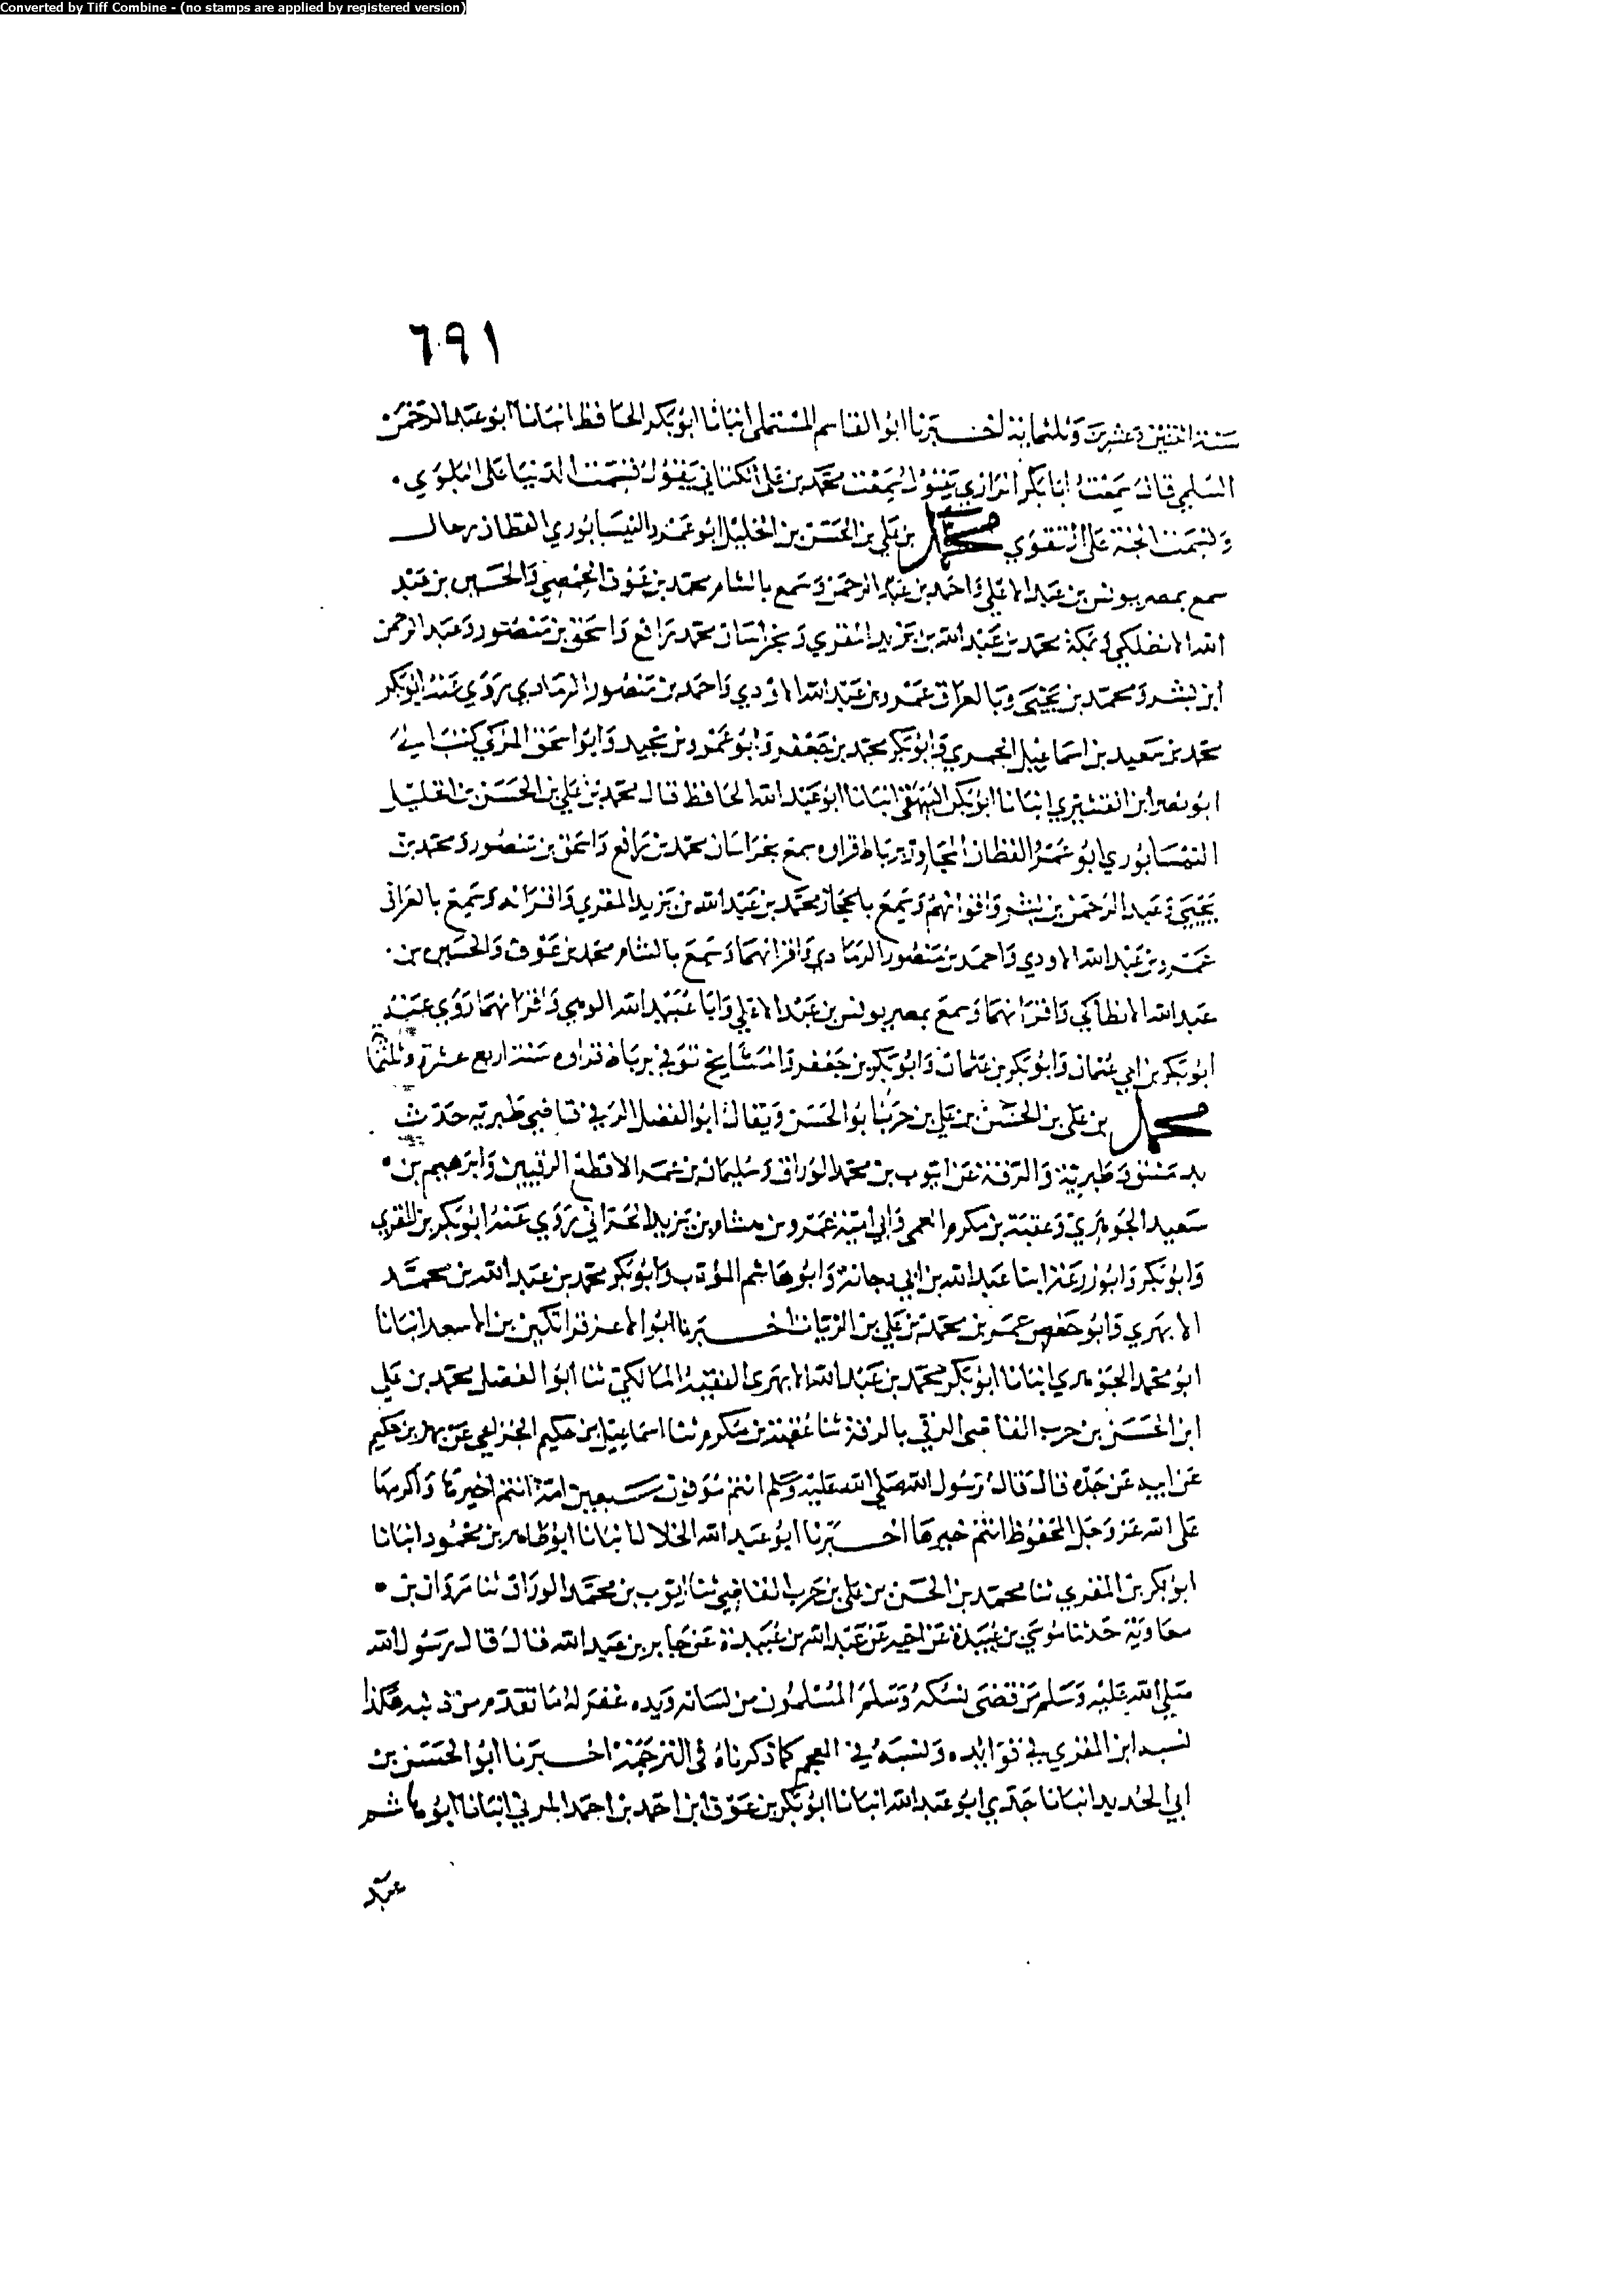 Converted by Tiff Combine - (no stamps are applied by registered version)
٦٩١
سنة اثنتين وعشرين وثلثماية اخبرنا ابو القاسم المستملي انبانا ابو بكر الحافظ انبانا ابو عبد الرحمن
السلمي قال سمعت ابا بكر الرازي يقول سمعت محمد بن علي الكتاني يقول قسمت الدنيا على البلوي
وقسمت الجنة على التقوي محمد بن علي بن الحسن بن الخليل ابو عمرو النيسابوري القطان رحال
سمع بمصر يونس بن عبد الاعلي واحمد بن عبد الرحمن وسمع بالشام محمد بن عوف الحمصي والحسين بن عبد
الله الانطاكي وبمكة محمد بن عبد الله بن يزيد المقري وبخراسان محمد بن رافع واسحق بن منصور وعبد الرحمن
ابن بشر ومحمد بن يحيى وبالعراق عمرو بن عبد الله الاودي واحمد بن منصور الرمادي روي عنه ابو بكر
محمد بن سعيد بن اسماعيل الحيري وابو بكر محمد بن جعفر وابو عمرو بن نجيد وابو اسحق المزكي كتب الي
ابو نصر ابن القشيري انبانا ابو بكر البيهقي انبانا ابو عبد الله الحافظ قال محمد بن علي بن الحسن بن الخليل
النيسابوري ابو عمرو القطان المجاور برباط فراوه سمع بخراسان محمد بن رافع واسحق بن منصور ومحمد بن
يحيى وعبد الرحمن بن بشر واقرانهم وسمع بالحجاز محمد بن عبد الله بن يزيد المقري واقرانه وسمع بالعراق
عمرو بن عبد الله الاودي واحمد بن منصور الرمادي واقرانهما وسمع بالشام محمد بن عوف والحسين بن
عبد الله الانطاكي واقرانهما وسمع بمصر يونس بن عبد الاعلي وابا عبيد الله الوهبي واقرانهما روي عنه
ابو بكر بن ابي عثمان وابو بكر بن عثمان وابو بكر بن جعفر والمشايخ توفي برباط فراوه سنة اربع عشرة وثلثما
محمد بن علي بن الحسن بن علي بن حرب ابو الحسن ويقال ابو الفضل الرقي قاضي طبرية حدث
بدمشق وطبرية والرقة عن ايوب بن محمد الوراق وسليمان بن عمر الاقطع الرقيين وابرهيم بن
سعيد الجوهري وعقبة بن مكرم العمى وابي امية عمرو بن هشام بن يزيد الحراني روي عنه ابو بكر بن المقري
وابو بكر وابو زرعة ابنا عبد الله بن ابي دجانة وابو هاشم المؤدب وابو بكر محمد بن عبد الله بن محمد
الابهري وابو حفص عمر بن محمد بن علي بن الزيات اخبرنا ابو الاعز قراتكين بن الاسعد انبانا
ابو محمد الجوهري انبانا ابو بكر محمد بن عبد الله الابهري الفقيه المالكي ثنا ابو الفضل محمد بن علي
ابن الحسن بن حرب القاضي الرقي بالرقة ثنا عقبة بن مكرم ثنا اسماعيل بن حكيم الخزاعي عن بهز بن حكيم
عن ابيه عن جده قال قال رسول الله صلى الله عليه وسلم انتم موفون سبعين امة انتم اخيرها واكرمها
على الله عز وجل المحفوظ انتم خيرها اخبرنا ابو عبد الله الخلال انبانا ابو طاهر بن محمود انبانا
ابو بكر بن المقري ثنا محمد بن الحسن بن علي بن حرب القاضي ثنا ايوب بن محمد الوراق ثنا مروان بن
معاوية حدثنا موسى بن عبيدة عن اخيه عن عبد الله بن عبيدة عن جابر بن عبد الله قال قال رسول الله
صلى الله عليه وسلم من قضى نسكه وسلم المسلمون من لسانه ويده غفر له ما تقدم من ذنبه هكذا
نسبه ابن المقري في فوايده ونسبه في المعجم كما ذكرناه في الترجمة اخبرنا ابو الحسن بن
ابي الحديد انبانا جدي ابو عبد الله انبانا ابو بكر بن عوف ابن احمد بن احمد المزني انبانا ابو هاشم
عبد